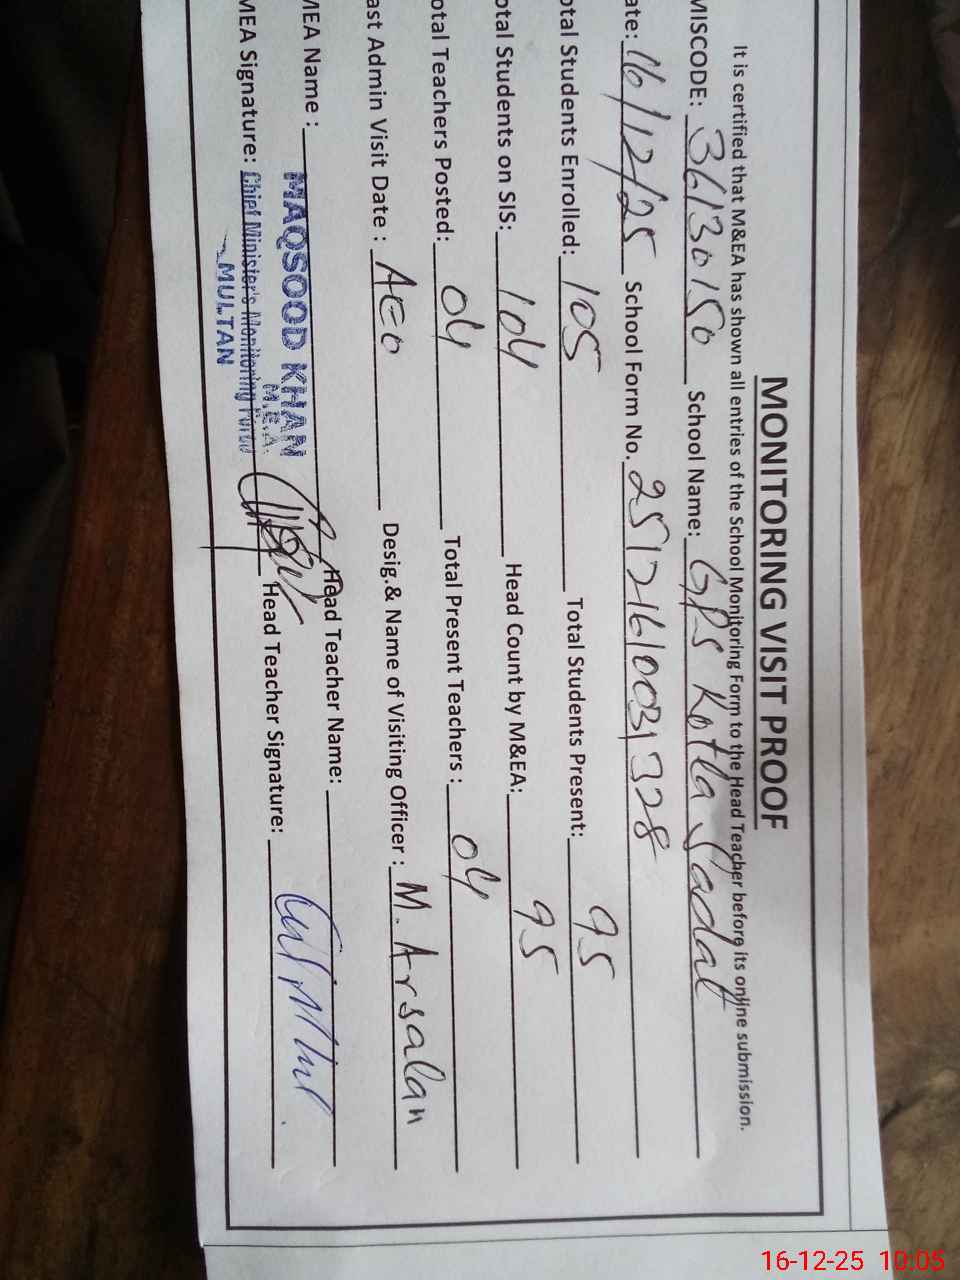 MONITORING VISIT PROOF
It is certified that M&EA has shown all entries of the School Monitoring Form to the Head Teacher before its online submission.
MISCODE: 36130150 School Name: GPS Kotla Sadat
ate: 16/12/25 School Form No. 2512161003328
otal Students Enrolled: 105 Total Students Present: 95
otal Students on SIS: 104 Head Count by M&EA: 95
otal Teachers Posted: 04 Total Present Teachers : 04
ast Admin Visit Date : AEO Desig.& Name of Visiting Officer : M. Arsalan
MEA Name : MAQSOOD KHAN Head Teacher Name:
M.E.A.
MEA Signature: Chief Minister's Monitoring Force Head Teacher Signature:
MULTAN
16-12-25 10:05